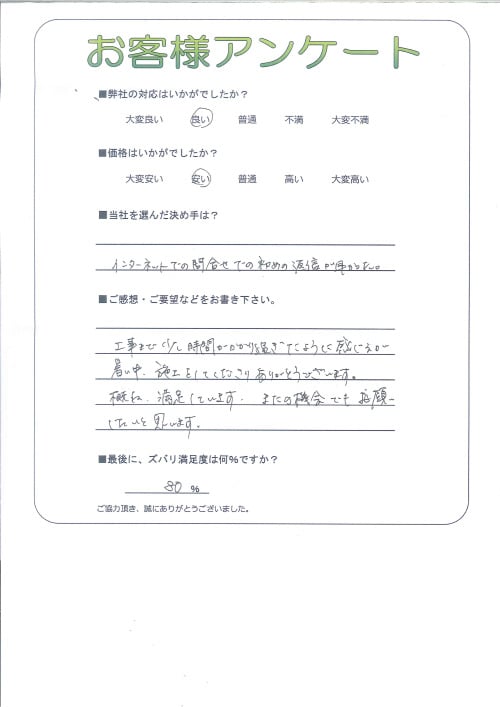 お客様アンケート
■弊社の対応はいかがでしたか？
大変良い 良い 普通 不満 大変不満
■価格はいかがでしたか？
大変安い 安い 普通 高い 大変高い
■当社を選んだ決め手は？
インターネットでの問合せでの初めの返信が早かった。
■ご感想・ご要望などをお書き下さい。
工事まで少し時間がかかり過ぎたように感じたが
暑い中、施工をしてくださりありがとうございます。
概ね、満足しています。またの機会でもお願い
したいと思います。
■最後に、ズバリ満足度は何％ですか？
80 %
ご協力頂き、誠にありがとうございました。